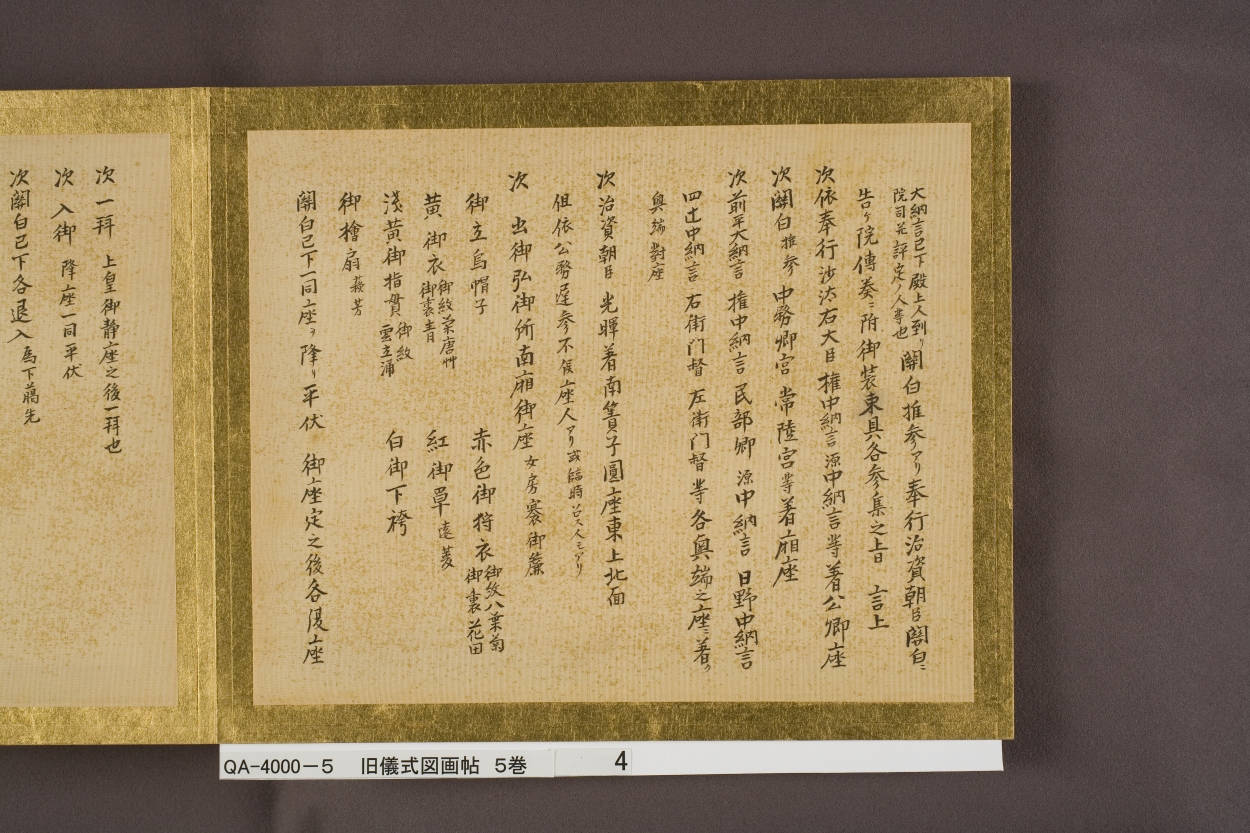 大納言已下殿上人到リ
院司並評定ノ人等也
關白推参アリ奉行治資朝臣關白ニ
告ケ院傳奏ニ附御装束具各参集之旨言上
次依奉行沙汰右大臣権中納言源中納言等着公卿座
次關白推参中務卿宮常陸宮等着廂座
次前平大納言権中納言民部卿源中納言日野中納言
四辻中納言右衛門督左衛門督等各奥端之座ニ着ク
奥端對座
次治資朝臣光暉着南簀子圓座東上北面
但依公務遅参不候座人アリ或臨時召ス人モアリ
次出御弘御所南廂御座女房褰御簾
御立烏帽子 赤色御狩衣 御紋八葉菊 御裏花田
黄御衣 御紋菜唐艸 御裏青 紅御單 遠菱
浅黄御指貫 御紋 雲立涌 白御下袴
御檜扇 蘇芳
關白已下一同座ヲ降リ平伏 御座定之後各復座
次一拜 上皇御静座之後一拜也
次入御 降座一同平伏
次關白已下各退入 為下﨟先
QA-4000-5 旧儀式図画帖 5巻 4